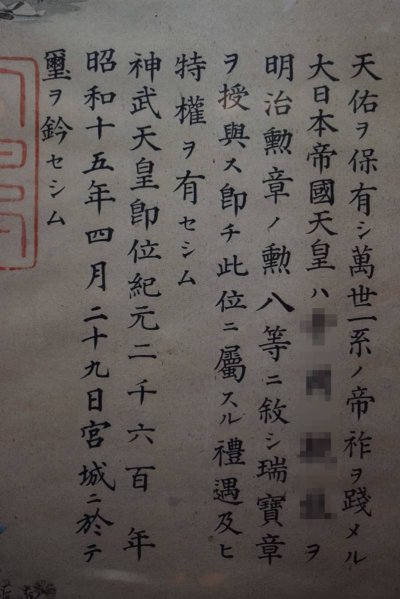 天佑ヲ保有シ萬世一系ノ帝祚ヲ踐メル
大日本帝國天皇ハ ヲ
明治勲章ノ勲八等ニ敘シ瑞寶章
ヲ授與ス卽チ此位ニ屬スル禮遇及ヒ
特權ヲ有セシム
神武天皇卽位紀元二千六百年
昭和十五年四月二十九日宮城ニ於テ
璽ヲ鈐セシム